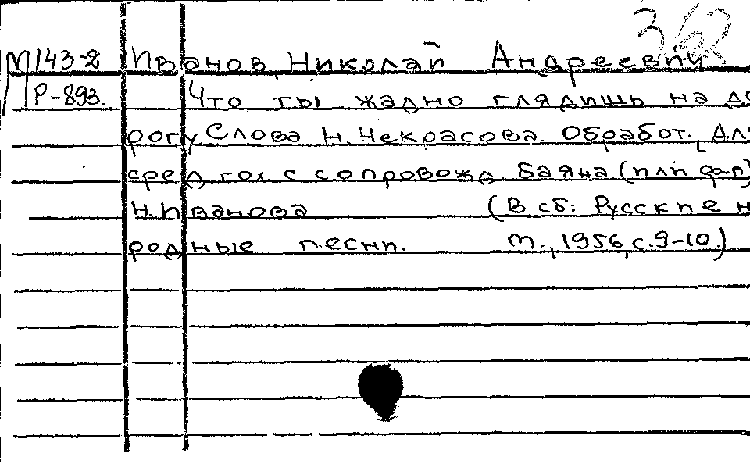 362
М143-2 Иванов, Николай Андреевич
Р-893. Что ты жадно глядишь на до
рогу. Слова Н. Некрасова. Обработ. [Дл
сред. гол с сопровожд. баяна (или ф-п)
Н. Иванова (В сб: Русские н
родные песни. М., 1956, с. 9-10.)